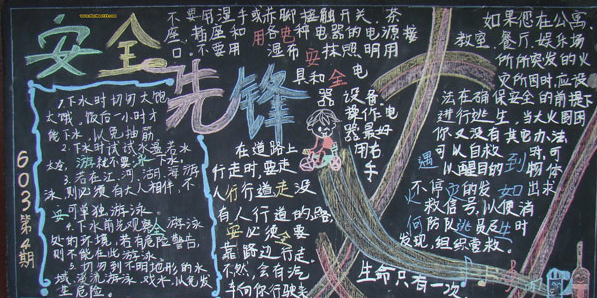 安全
先锋
603第4期
1.下水时切勿太饱
太饿。饭后一小时才
能下水,以免抽筋
2.下水时试试水温若水
太冷,游就不要冰下水,
3.若在江、河、湖、海游
泳,则必须有大人相伴,不
安可单独游泳。
4.下水前先观察全游泳
处的环境,若有危险警告,
则不能在此游泳。
5.切勿到不明地形的水
域漂流游泳戏水,以免发
生危险。
不要用湿手或赤脚接触开关、茶
座、插座和用各种电器的电源接
口。不要用湿布抹照明用
具和全电
器设备。
操作电
器最好
用右
手
在道路上
行走时,要走
人行行道走没
有人行道的路,
安必须全要
靠路边行走。
不然,会有汽
车向你行驶来
如果您在公寓、
教室、餐厅、娱乐场
所所突发的火
灾所困时,应设
法在确保安全的前提下
进行逃生,当火围困
你又没有其它办法
可以自救时,可
以醒目的到物体
不停的发出求
救信号,以便消
防队员及时
发现,组织营救。
生命只有一次